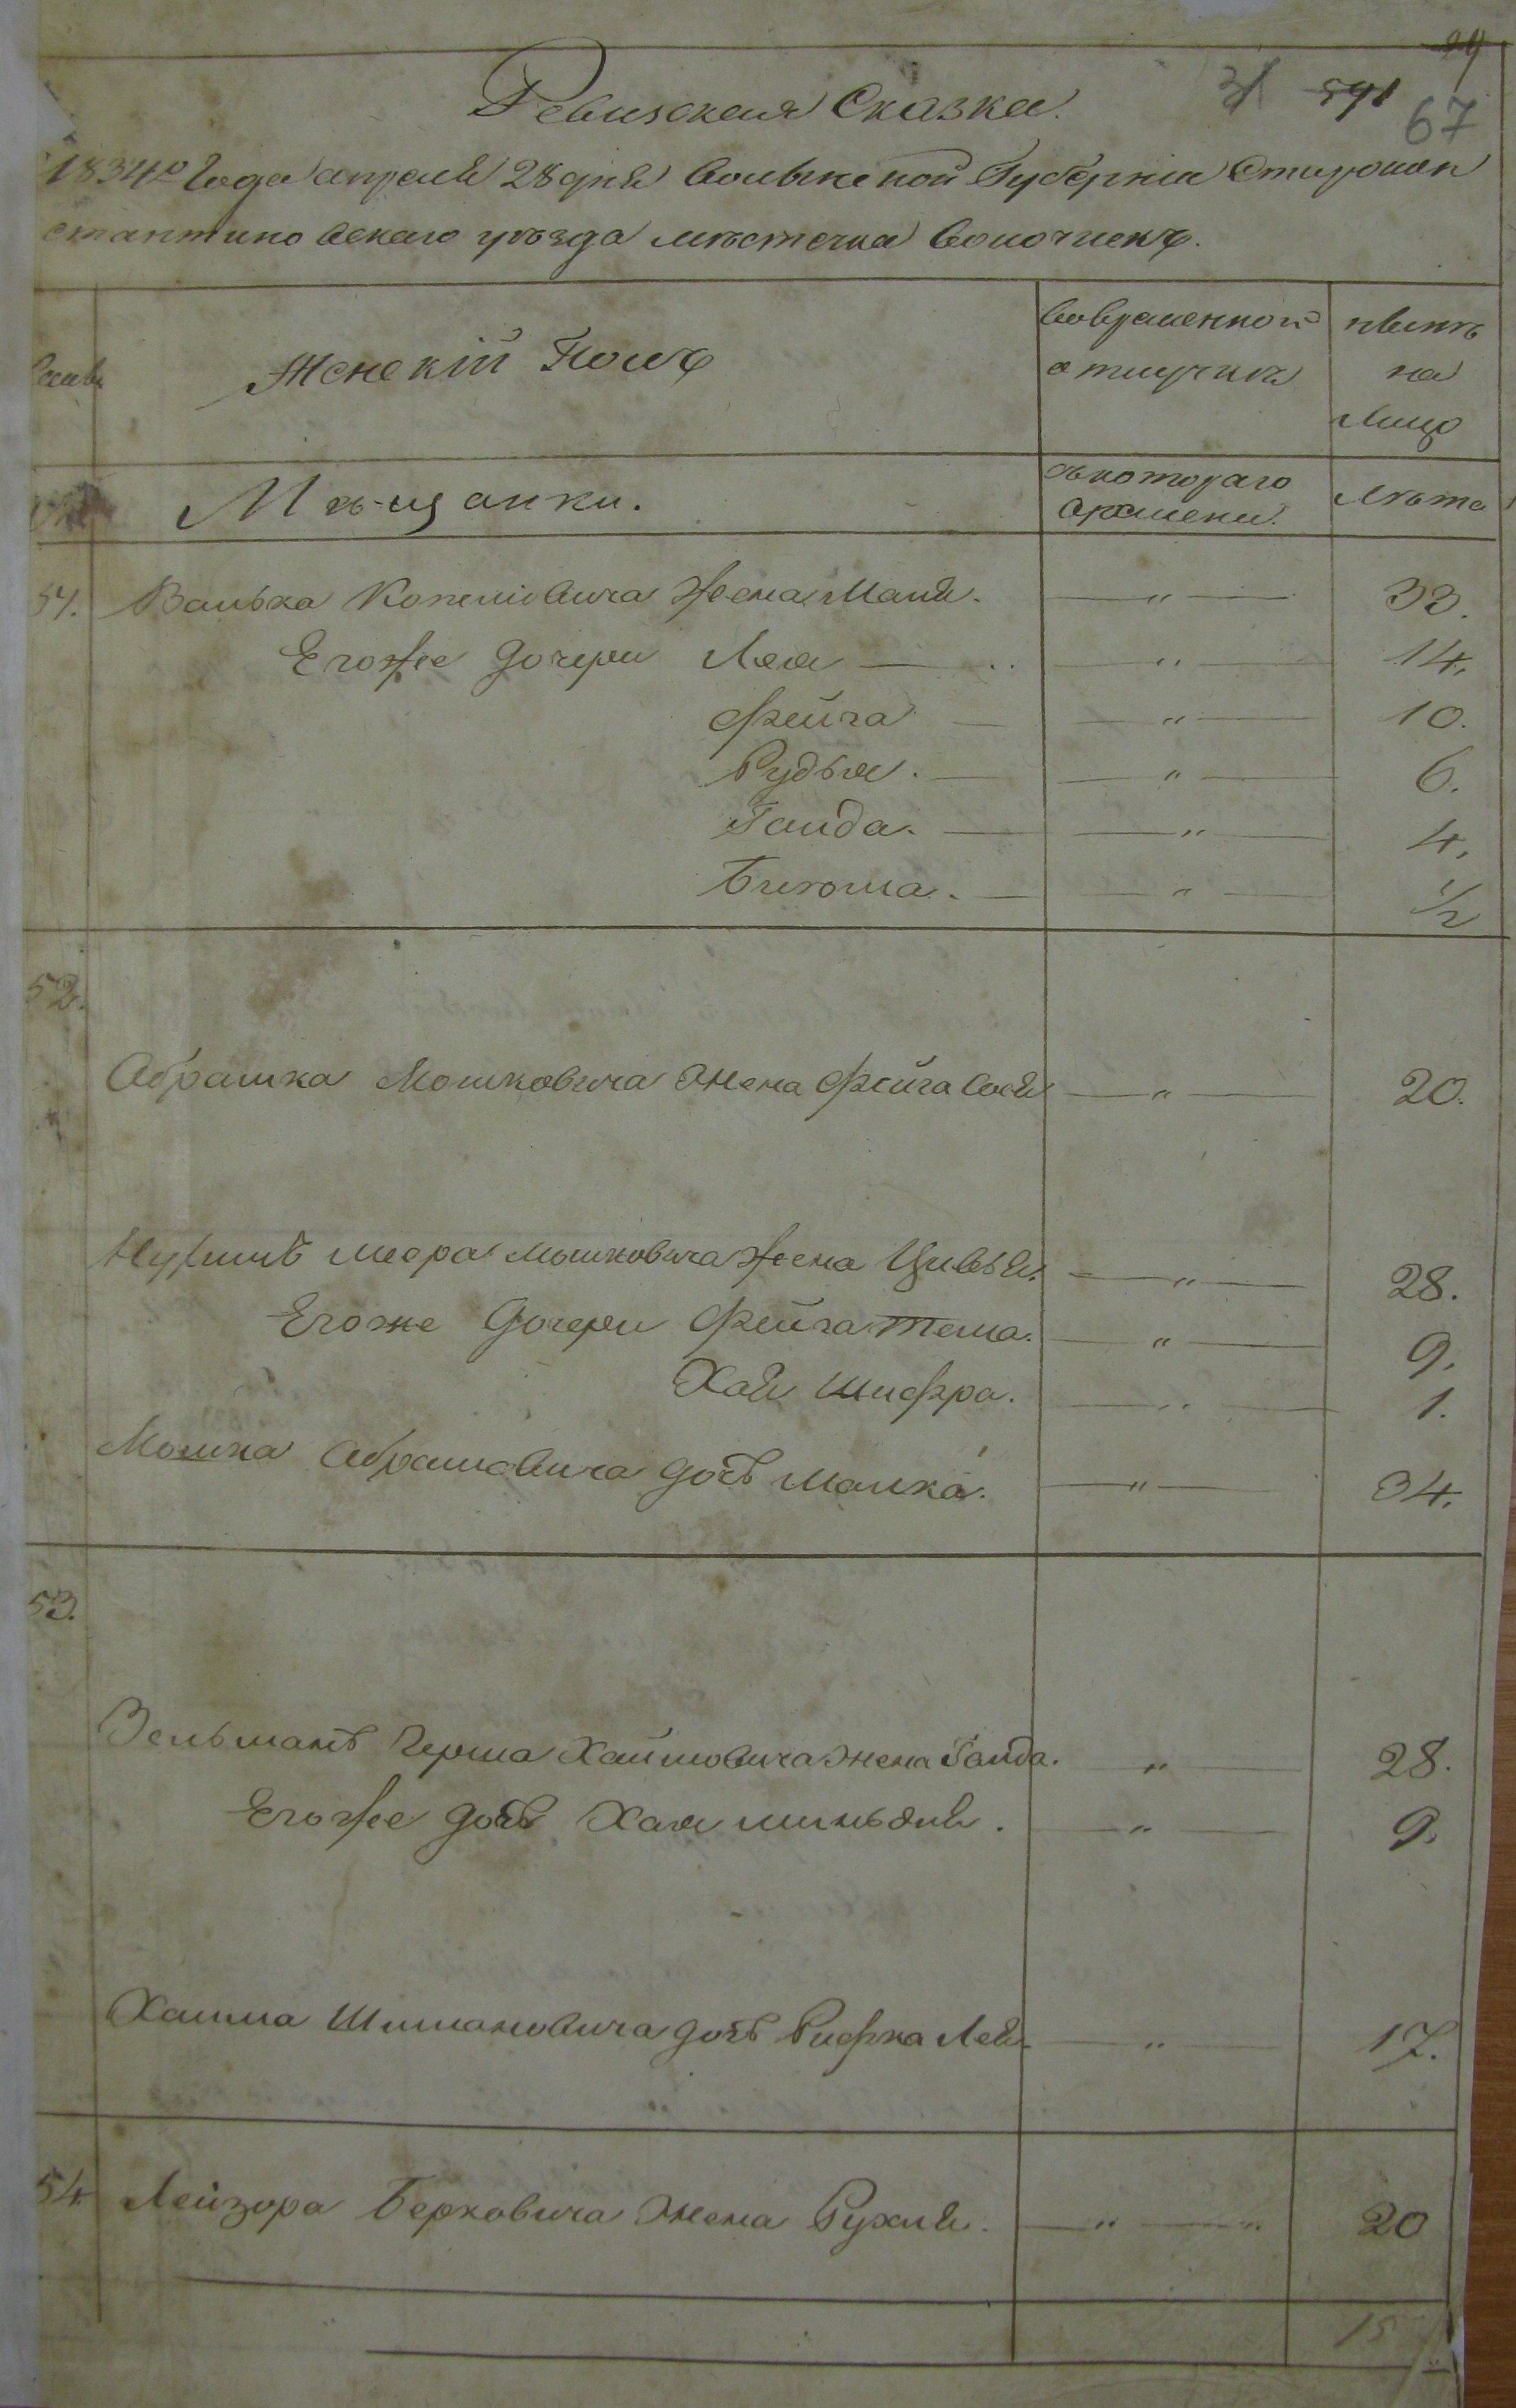 67
Ревизская Сказка.
1834го Года апреля 28 дня Волынской Губернiи Старокон
стантиновскаго уѣзда мѣстечка Волочискъ.
Женскiй Полъ
Вовременной отлучкѣ
нынѣ на Лицо
Мѣщанки.
съкотораго времени.
Лѣта
51. Валька Копелiовича Жена Маля. — " — 33.
Егоже Дочери Лея — " — 14.
Фейга — " — 10.
Рудья. — " — 6.
Гайда. — " — 4.
Блюма. — " — 1/2
52.
Абрашка Мошковича Жена Фейга Сося — " — 20.
Меера Мошковича Жена Цивья. — " — 28.
Егоже Дочери Фейга Тема. — " — 9.
Хая Шифра. — " — 1.
Мошка Абрамовича дочь Малка. — " — 34.
53.
Зельманъ Герша Хаимовича Жена Гайда. " — 28.
Егоже дочь Хая Миньдля. — " — 9.
Хаима Шимановича дочь Рифка Лея — " — 17.
54 Лейзора Берковича Жена Рухля. — " — " 20
15